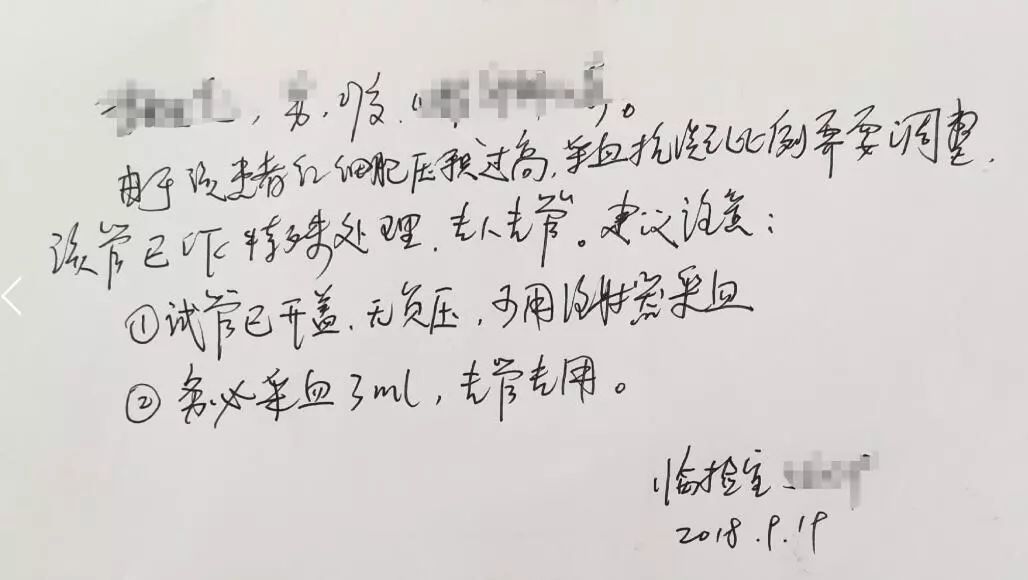 男,
由于该患者红细胞压积过高,采血抗凝比例需要调整.
该管已作特殊处理,专人专管。建议注意:
①试管已开盖,无负压,可用注射器采血
②务必采血3ml,专管专用。
临检室
2018.9.19